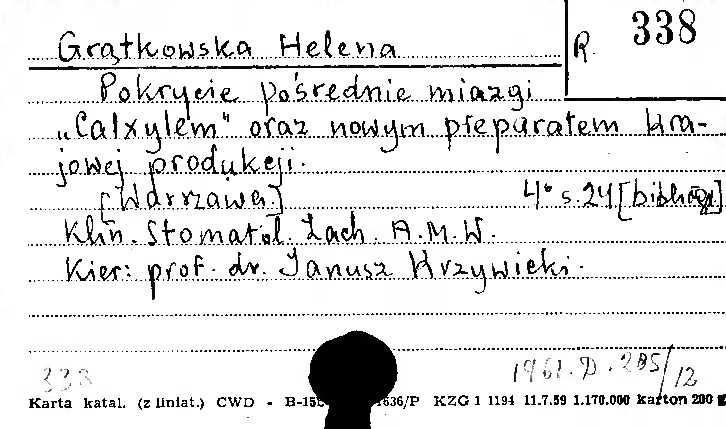 Grątkowska Helena R. 338
Pokrycie pośrednie miazgi
„Calxylem" oraz nowym preparatem kra-
jowej produkcji.
[Warszawa.] 4° s. 24 [bibliogr.]
Klin. Stomatol. Zach. A.M.W.
Kier: prof. dr. Janusz Krzywicki.
338 1961. D. 205/12
Karta katal. (z liniat.) CWD - 1636/P KZG 1 1194 11.7.59 1.170.000 karton 200 g